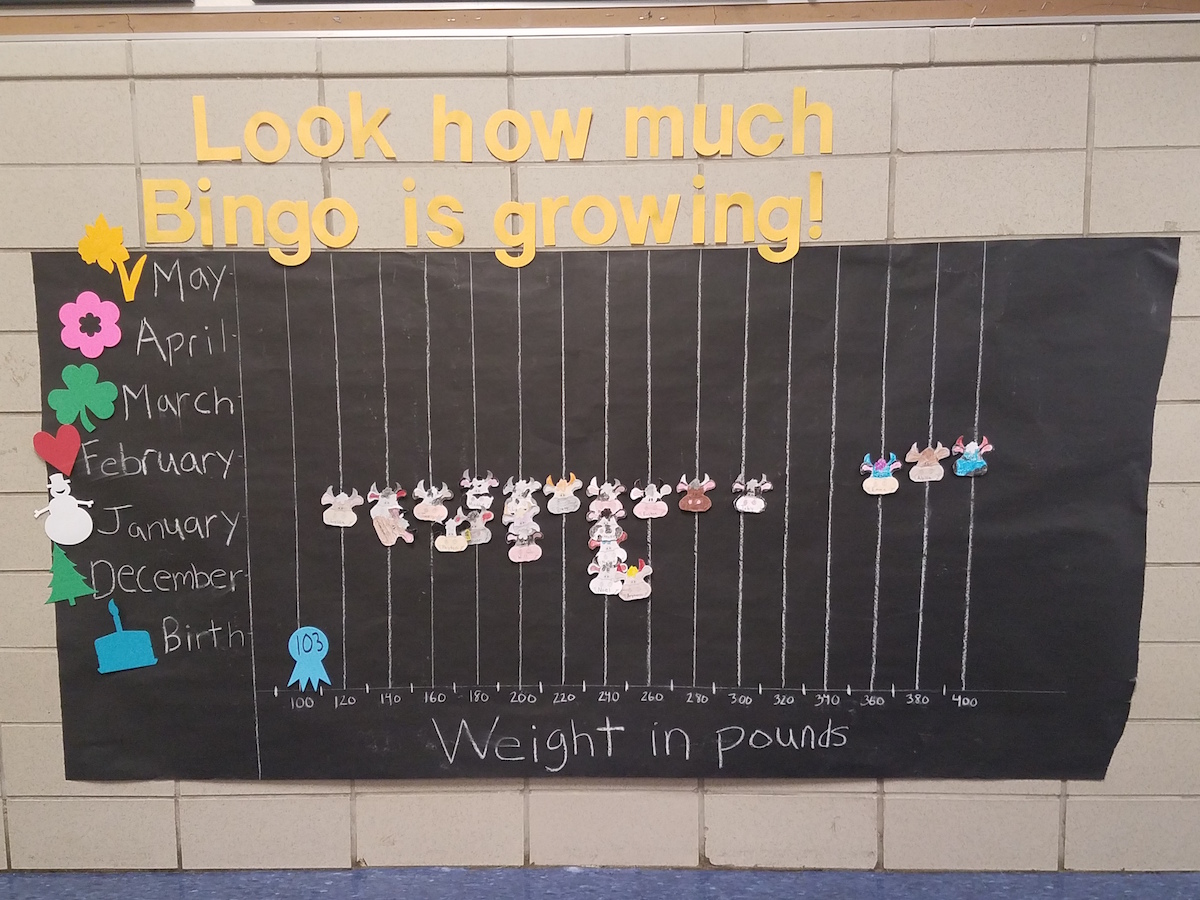 Look how much
Bingo is growing!
May
April
March
February
January
December
Birth
103
100 120 140 160 180 200 220 240 260 280 300 320 340 360 380 400
Weight in pounds